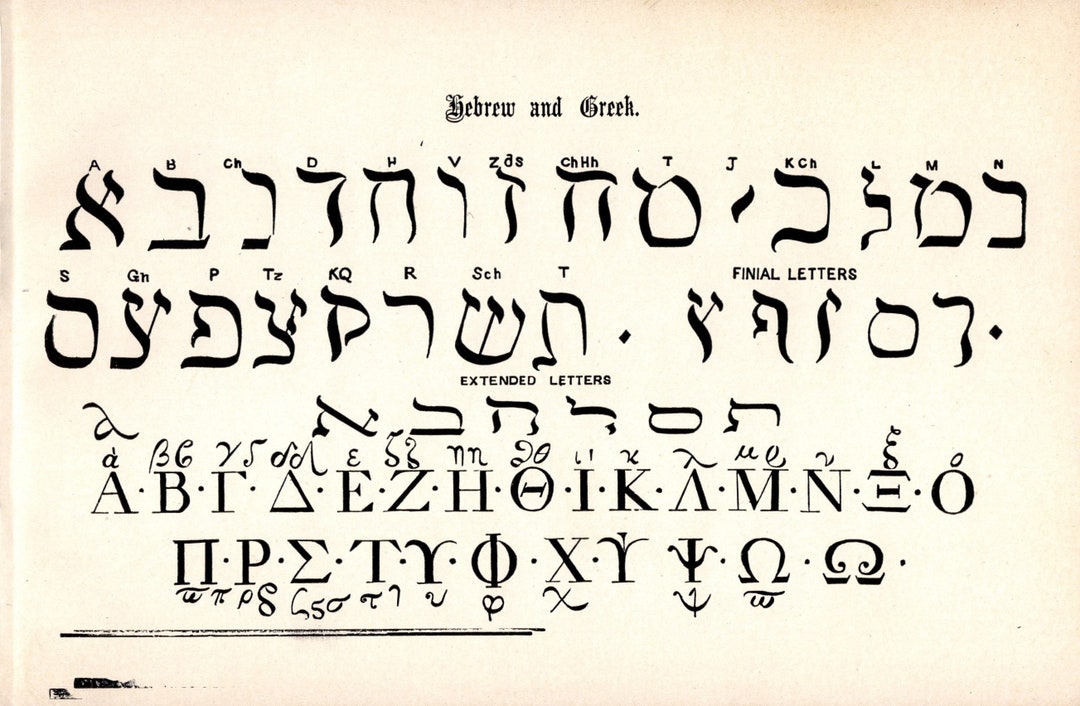 Hebrew and Greek.
A B Ch D H V Z ds ChHh T J KCh L M N
א ב ג ד ה ו ז ח ט י כ ל מ נ
S Gh P Tz KQ R Sch T FINIAL LETTERS
ס ע פ צ ק ר ש ת · ץ ף ן ם ך ·
EXTENDED LETTERS
א ב ה ל ם ת
α β ϐ γ δ ε ζ η θ ι κ λ μ ν ξ ο
Α·Β·Γ·Δ·Ε·Ζ·Η·Θ·Ι·Κ·Λ·Μ·Ν·Ξ·Ο
Π·Ρ·Σ·Τ·Υ·Φ·Χ·Ϋ Ψ·Ω·Ω·
ϖ π ρ ς σ τ υ φ χ ψ ϖ